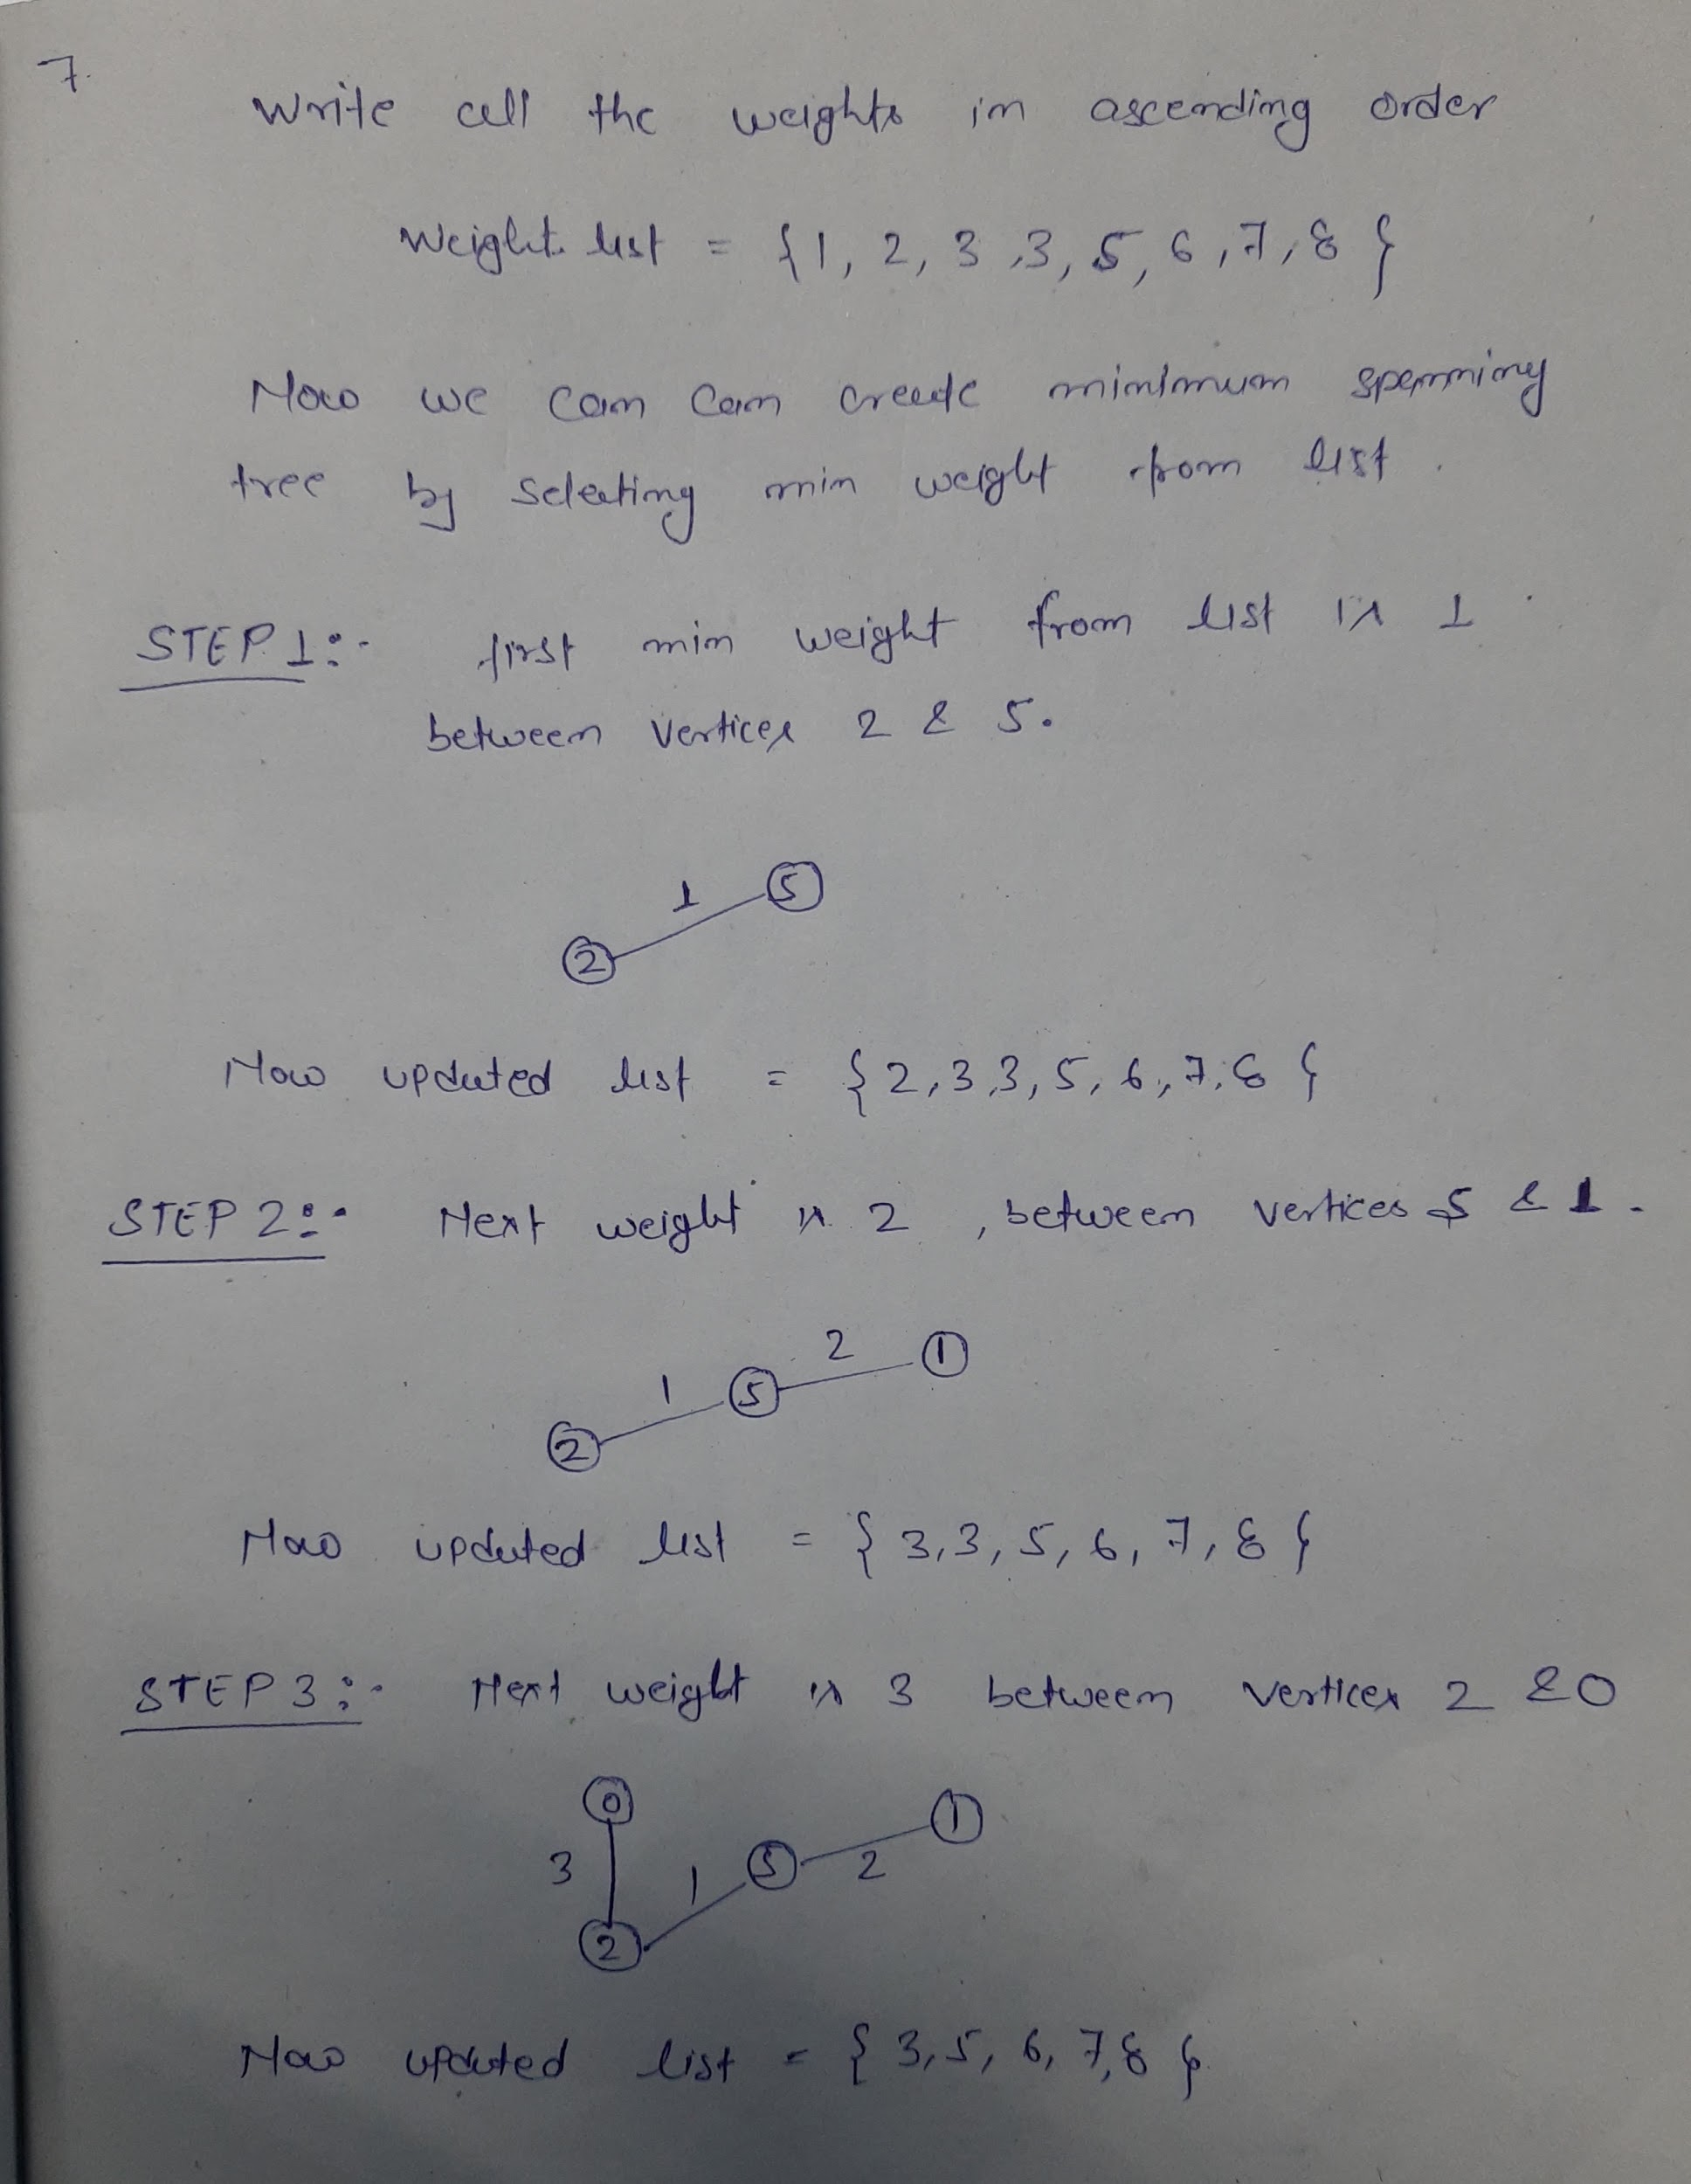 7.
Write all the weights in ascending order
Weight list = {1, 2, 3, 3, 5, 6, 7, 8}
Now we can can create minimum spanning
tree by selecting min weight from list.
STEP 1:- first min weight from list is 1
between vertices 2 & 5.
1
5
2
Now updated list = {2, 3, 3, 5, 6, 7, 8}
STEP 2:- Next weight is 2, between vertices 5 & 1.
2
1
1
5
2
Now updated list = {3, 3, 5, 6, 7, 8}
STEP 3:- Next weight is 3 between vertices 2 & 0
0
1
3
1
5
2
2
Now updated list = {3, 5, 6, 7, 8}